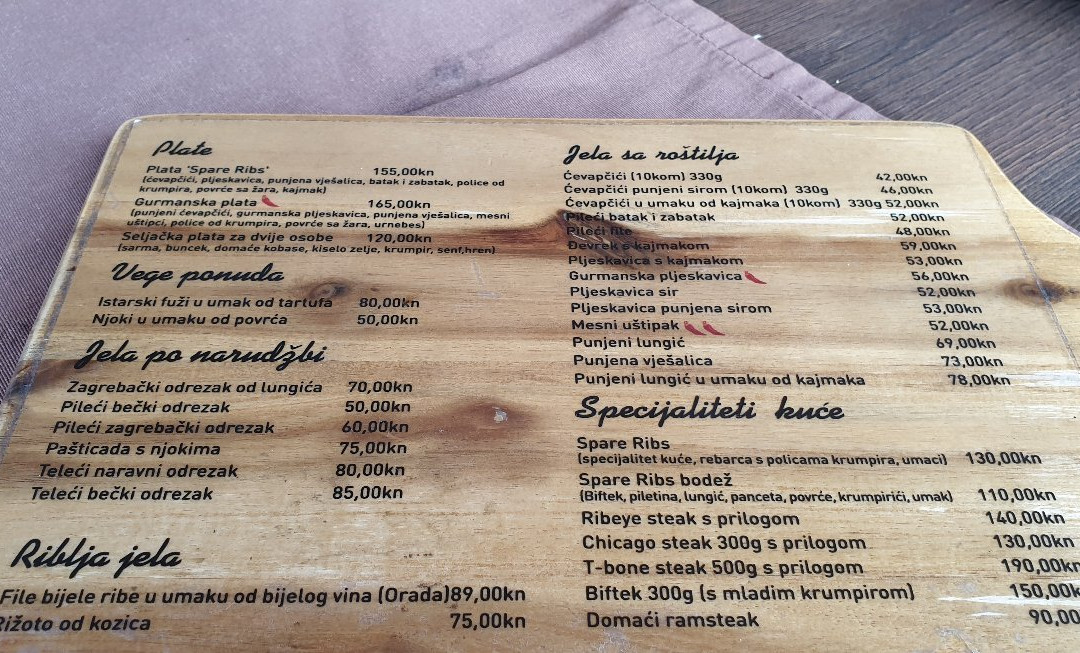 Plate
Plata 'Spare Ribs' 155,00kn
(ćevapčići, pljeskavica, punjena vješalica, batak i zabatak, police od
krumpira, povrće sa žara, kajmak)
Gurmanska plata 165,00kn
(punjeni ćevapčići, gurmanska pljeskavica, punjena vješalica, mesni
uštipci, police od krumpira, povrće sa žara, urnebes)
Seljačka plata za dvije osobe 120,00kn
(sarma, buncek, domaće kobase, kiselo zelje, krumpir, senf,hren)
Vege ponuda
Istarski fuži u umak od tartufa 80,00kn
Njoki u umaku od povrća 50,00kn
Jela po narudžbi
Zagrebački odrezak od lungića 70,00kn
Pileći bečki odrezak 50,00kn
Pileći zagrebački odrezak 60,00kn
Pašticada s njokima 75,00kn
Teleći naravni odrezak 80,00kn
Teleći bečki odrezak 85,00kn
Riblja jela
File bijele ribe u umaku od bijelog vina (Orada) 89,00kn
Rižoto od kozica 75,00kn
Jela sa roštilja
Ćevapčići (10kom) 330g 42,00kn
Ćevapčići punjeni sirom (10kom) 330g 46,00kn
Ćevapčići u umaku od kajmaka (10kom) 330g 52,00kn
Pileći batak i zabatak 52,00kn
Pileći file 48,00kn
Đevrek s kajmakom 59,00kn
Pljeskavica s kajmakom 53,00kn
Gurmanska pljeskavica 56,00kn
Pljeskavica sir 52,00kn
Pljeskavica punjena sirom 53,00kn
Mesni uštipak 52,00kn
Punjeni lungić 69,00kn
Punjena vješalica 73,00kn
Punjeni lungić u umaku od kajmaka 78,00kn
Specijaliteti kuće
Spare Ribs
(specijalitet kuće, rebarca s policama krumpira, umaci) 130,00kn
Spare Ribs bodež
(Biftek, piletina, lungić, panceta, povrće, krumpirići, umak) 110,00kn
Ribeye steak s prilogom 140,00kn
Chicago steak 300g s prilogom 130,00kn
T-bone steak 500g s prilogom 190,00kn
Biftek 300g (s mladim krumpirom) 150,00k
Domaći ramsteak 90,00